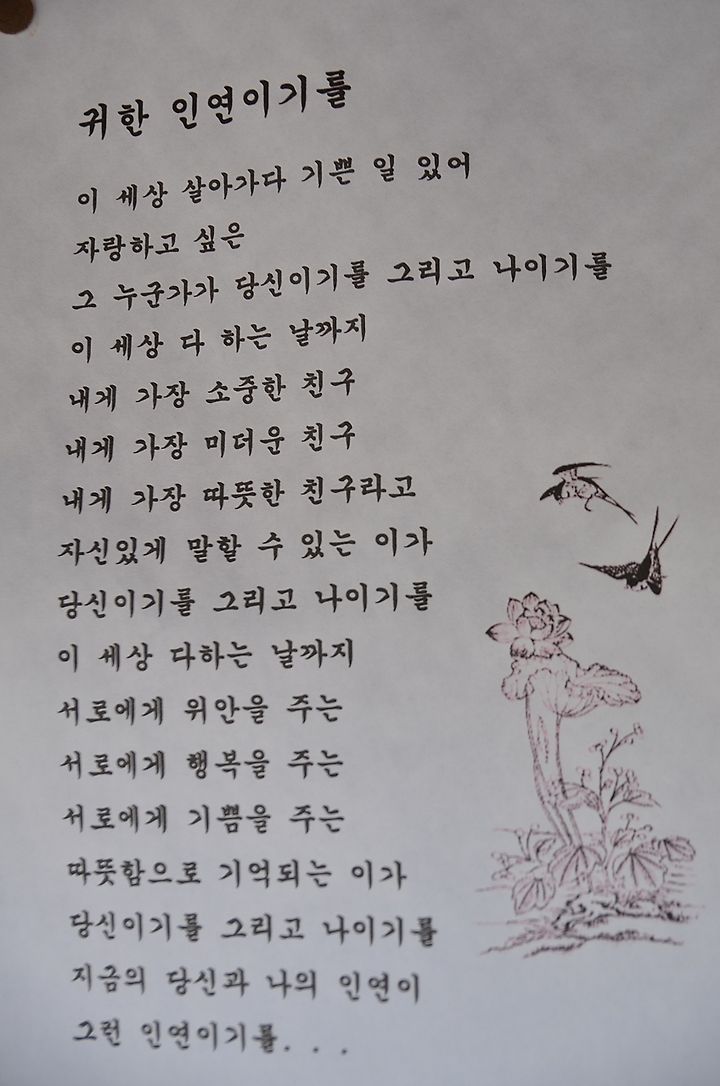 귀한 인연이기를
이 세상 살아가다 기쁜 일 있어
자랑하고 싶은
그 누군가가 당신이기를 그리고 나이기를
이 세상 다 하는 날까지
내게 가장 소중한 친구
내게 가장 미더운 친구
내게 가장 따뜻한 친구라고
자신있게 말할 수 있는 이가
당신이기를 그리고 나이기를
이 세상 다하는 날까지
서로에게 위안을 주는
서로에게 행복을 주는
서로에게 기쁨을 주는
따뜻함으로 기억되는 이가
당신이기를 그리고 나이기를
지금의 당신과 나의 인연이
그런 인연이기를. . .